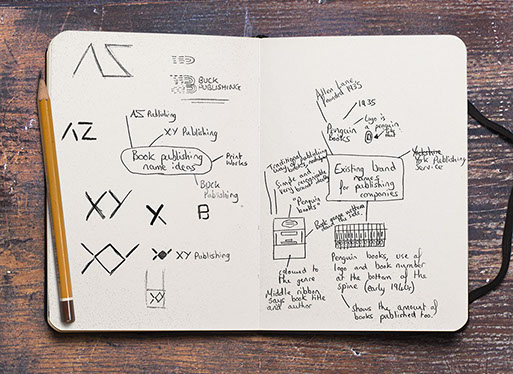 AZ
BUCK
PUBLISHING
AZ Publishing
XY Publishing
AZ
Book publishing
name ideas
Print
Works
Buck
Publishing
XY
X
B
XY
XY Publishing
XY
Allen Lane
founded 1935
1935
Logo is
a penguin
Penguin
Books
Traditional
Simple and
Existing brand
names
for publishing
companies
Yorkshire
York Publishing
Service
"Penguin
books"
Book genre written
coloured to
the genre
Middle ribbon
says book title
and author
Penguin books, use of
logo and book number
at the bottom of the
spine (early 1940s)
shows the amount of
books published too.